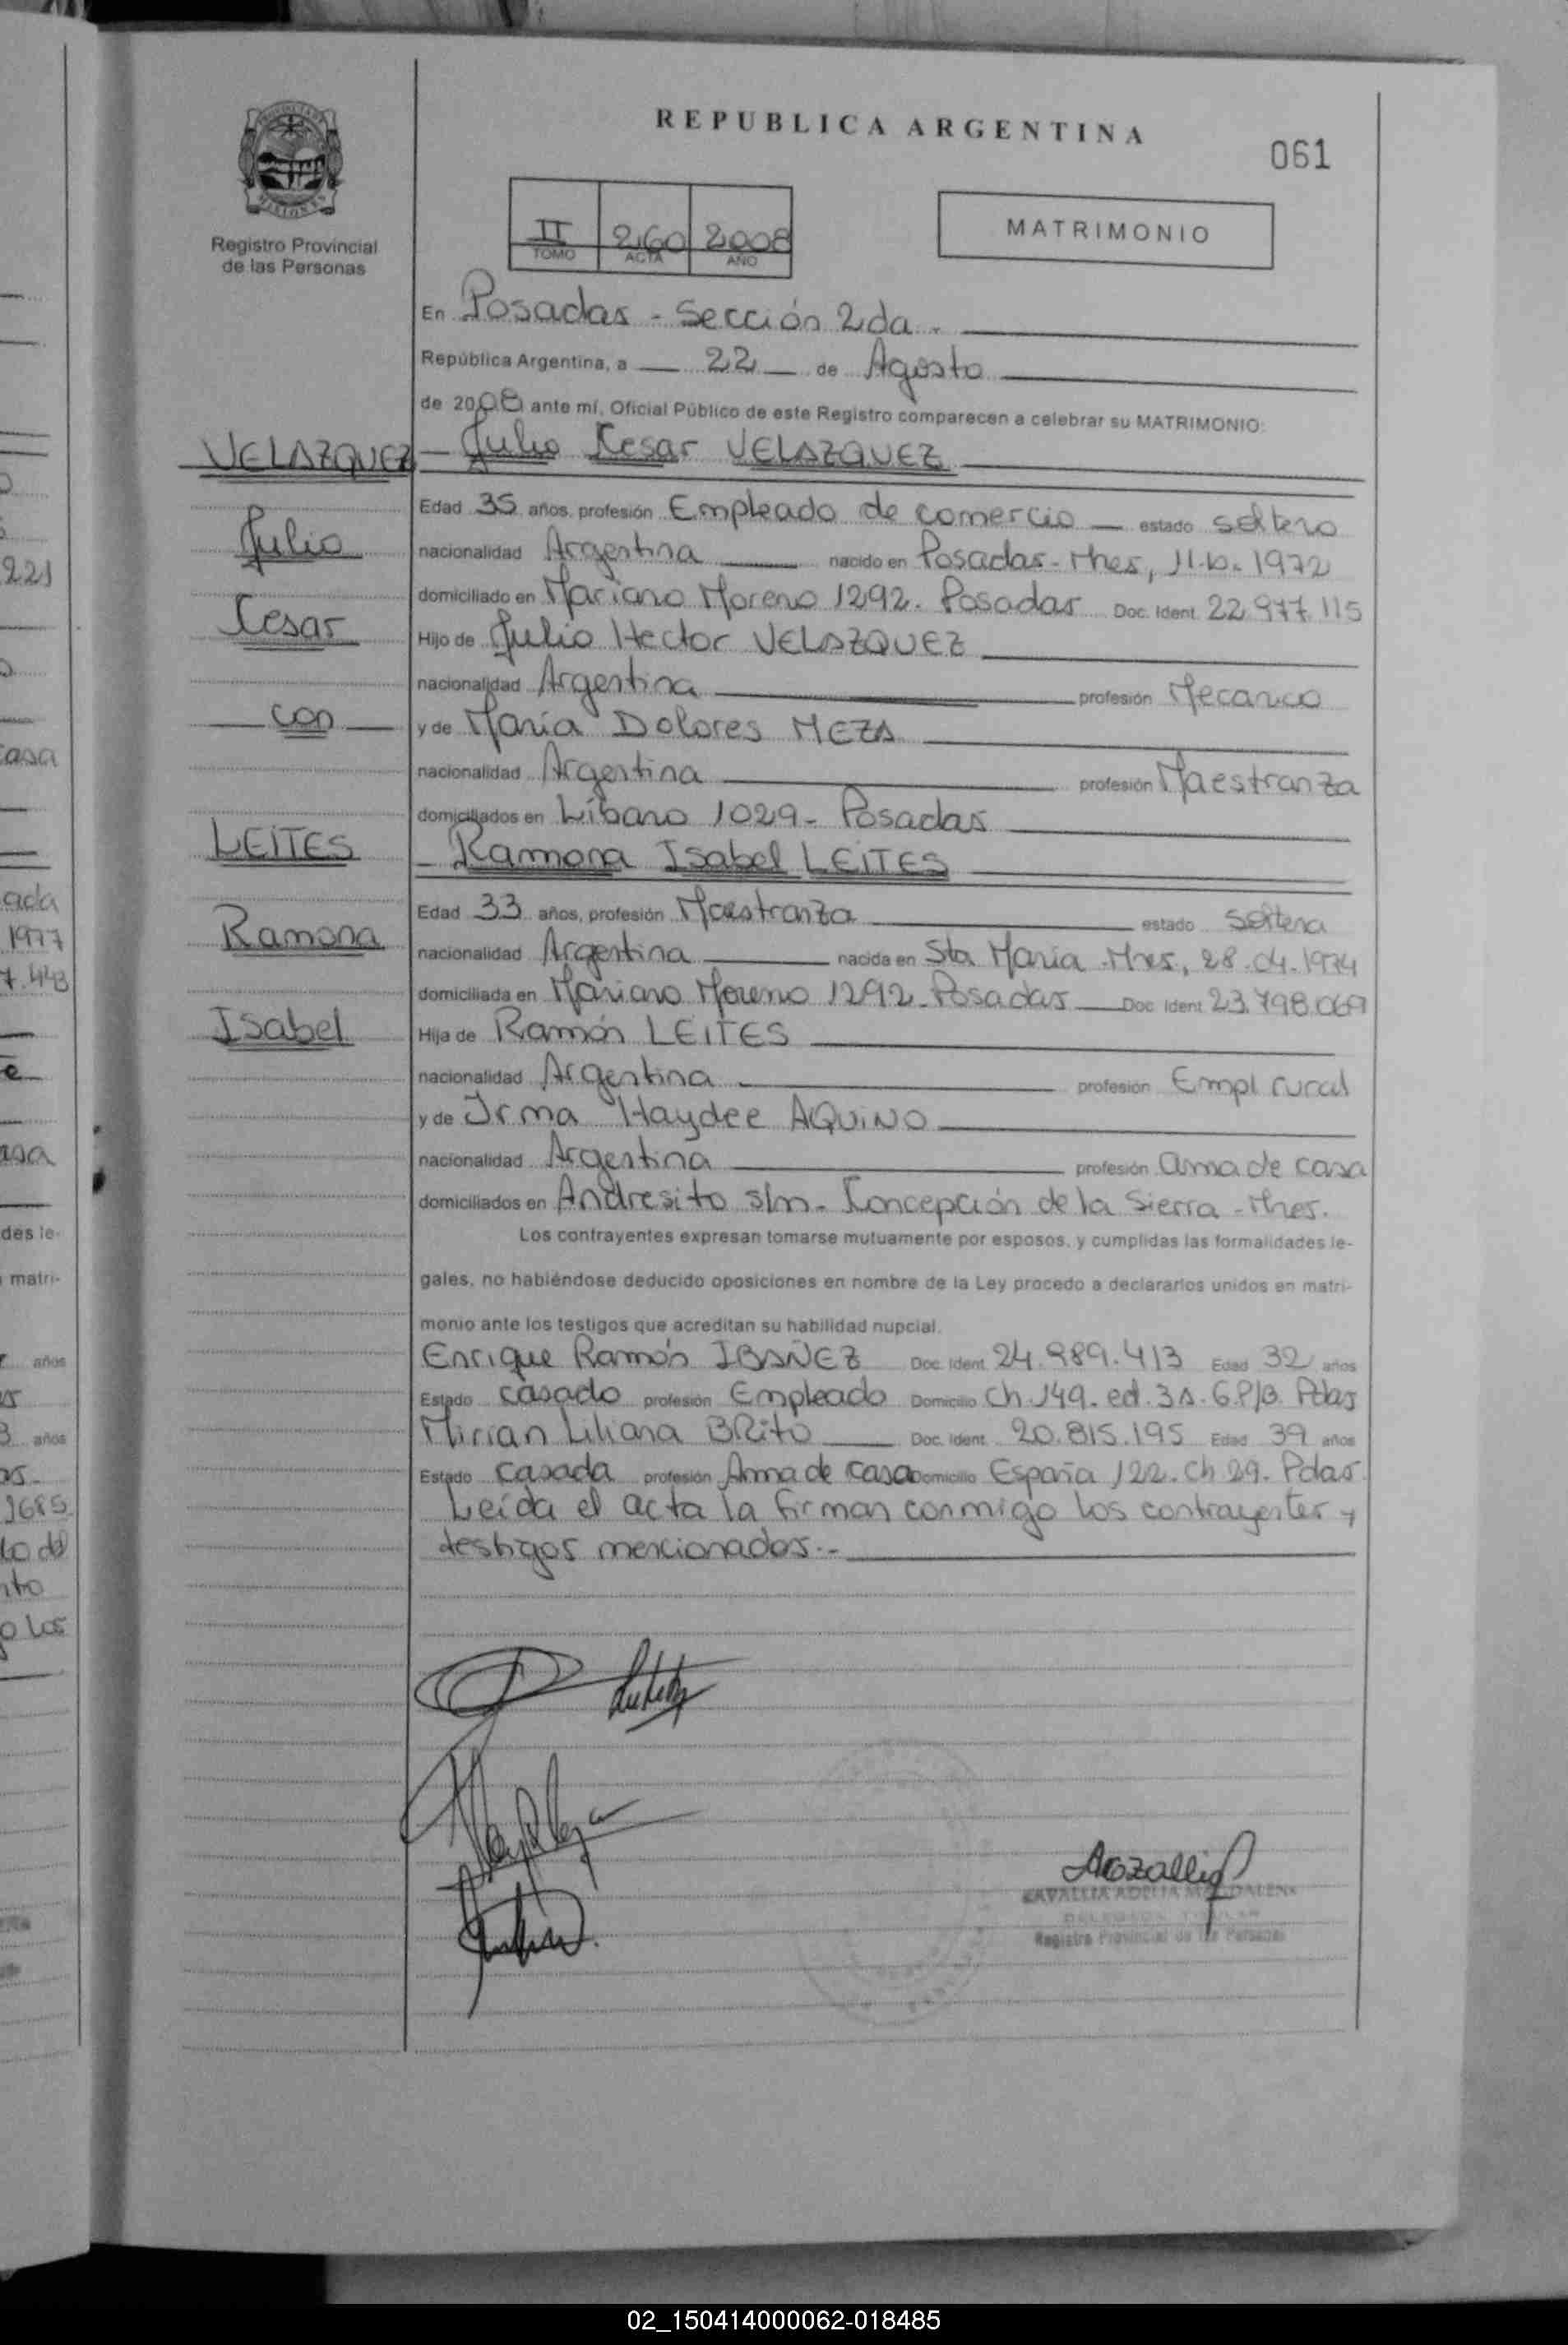 REPUBLICA ARGENTINA
061
Registro Provincial
de las Personas
II 260 2008
TOMO ACTA AÑO
MATRIMONIO
En Posadas - Sección 2da.
República Argentina, a 22 de Agosto
de 2008 ante mí, Oficial Público de este Registro comparecen a celebrar su MATRIMONIO:
VELAZQUEZ - Julio Cesar VELAZQUEZ
Edad 35 años, profesión Empleado de comercio estado soltero
Julio
nacionalidad Argentina nacido en Posadas - Mnes, 11.10.1972
domiciliado en Mariano Moreno 1292. Posadas Doc. Ident. 22.977.115
Cesar
Hijo de Julio Hector VELAZQUEZ
nacionalidad Argentina profesión Mecanico
con
y de María Dolores MEZA
nacionalidad Argentina profesión Maestranza
domiciliados en Líbano 1029 - Posadas
LEITES
- Ramona Isabel LEITES
Edad 33 años, profesión Maestranza estado soltera
Ramona
nacionalidad Argentina nacida en Sta María - Mnes, 28.04.1974
domiciliada en Mariano Moreno 1292 - Posadas Doc. Ident. 23.798.069
Isabel
Hija de Ramón LEITES
nacionalidad Argentina profesión Empl rural
y de Irma Haydee AQUINO
nacionalidad Argentina profesión ama de casa
domiciliados en Andresito s/n - Concepción de la Sierra - Mnes.
Los contrayentes expresan tomarse mutuamente por esposos, y cumplidas las formalidades le-
gales, no habiéndose deducido oposiciones en nombre de la Ley procedo a declararlos unidos en matri-
monio ante los testigos que acreditan su habilidad nupcial.
Enrique Ramón IBAÑEZ Doc. Ident. 24.989.413 Edad 32 años
Estado casado profesión Empleado Domicilio Ch. 149. ed. 3A. 6.P/B. Pdas
Mirian Liliana BRITO Doc. Ident. 20.815.195 Edad 39 años
Estado casada profesión Ama de casa Domicilio España 122. Ch 29. Pdas.
Leída el acta la firman conmigo los contrayentes y
testigos mencionados.-
ZAVALLIA ADELIA MAGDALENA
DELEGADA TITULAR
Registro Provincial de las Personas
02_150414000062-018485